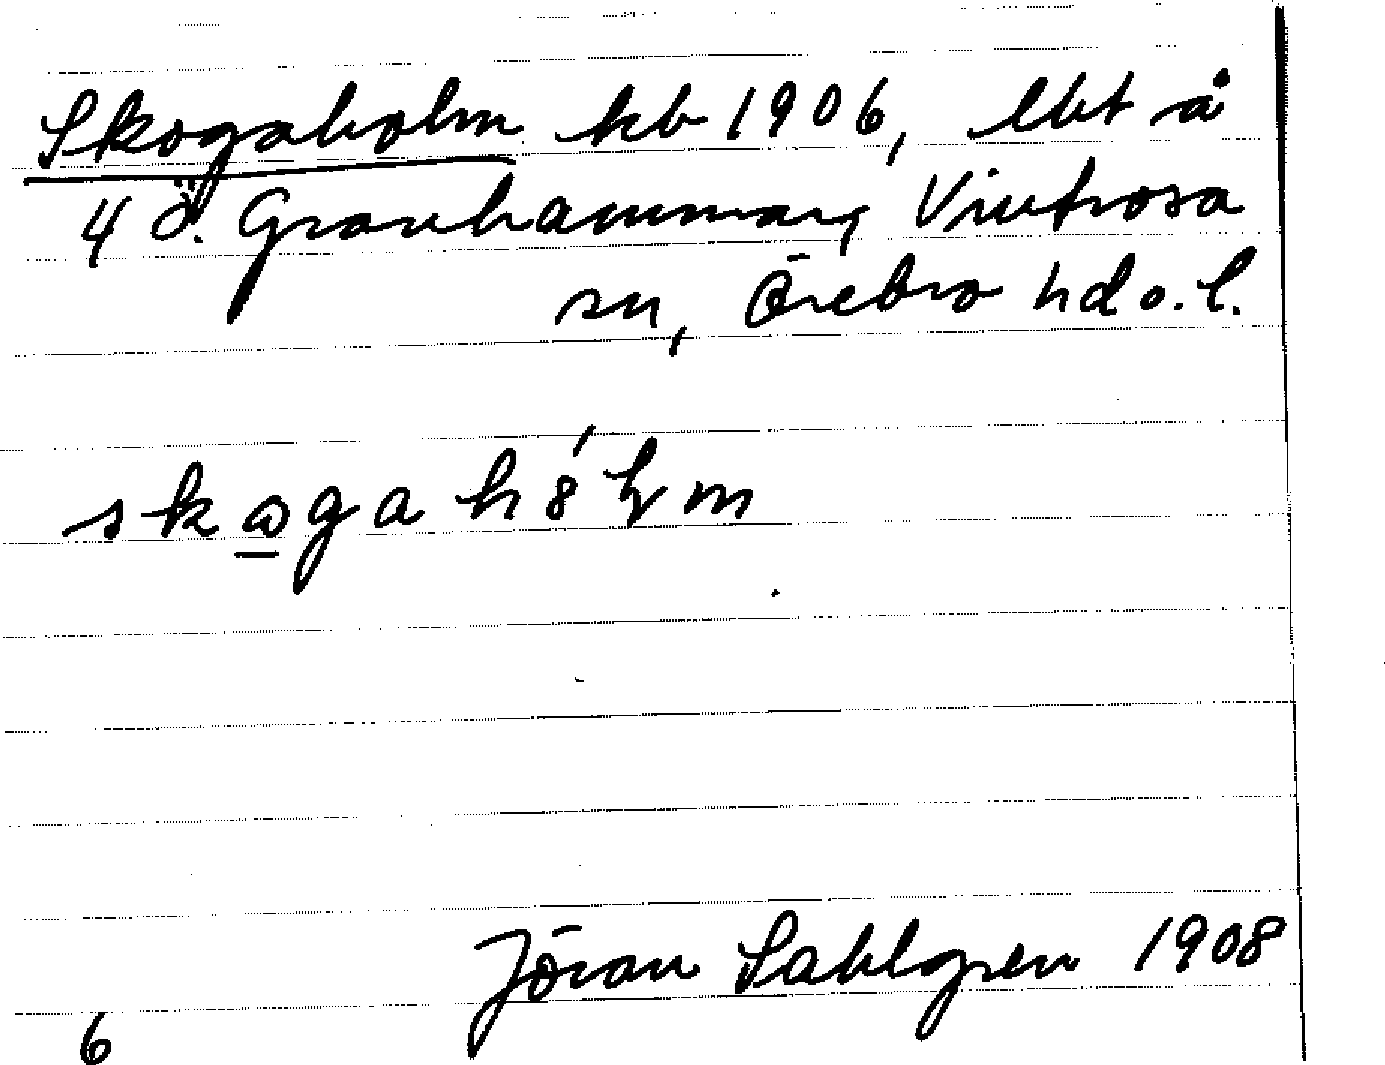 Skogaholm kb 1906, lht å
4 ö. Gravhammar, Vintrosa
sn, Örebro hd o. l.
skogahólm
Jöran Sahlgren 1908
6